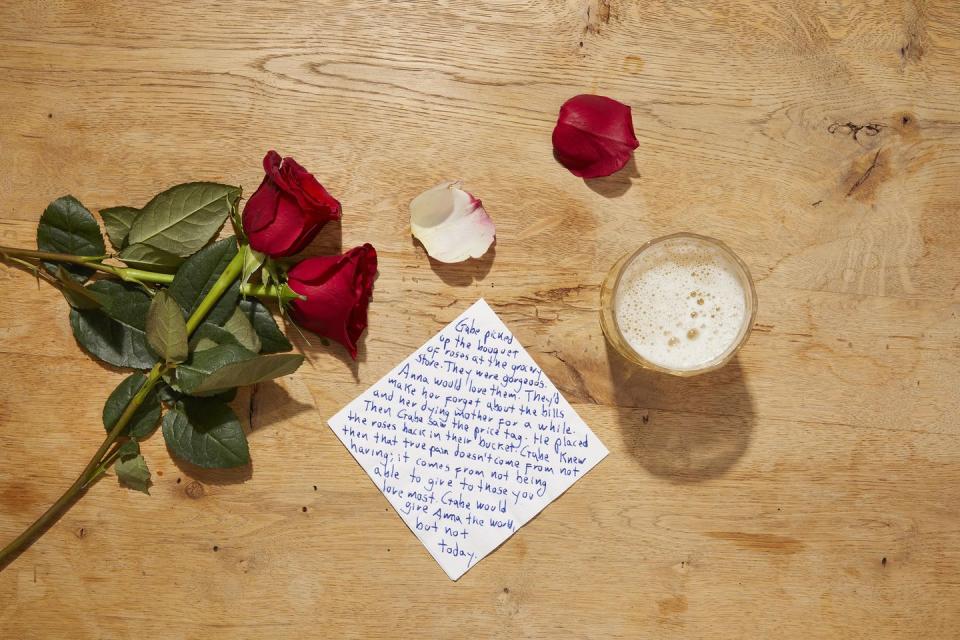 Gabe picked
up the bouquet
of roses at the grocery
store. They were gorgeous.
Anna would love them. They'd
make her forget about the bills
and her dying mother for a while.
Then Gabe saw the price tag. He placed
the roses back in their bucket. Gabe knew
then that true pain doesn't come from not
having; it comes from not being
able to give to those you
love most. Gabe would
give Anna the world,
but not
today.